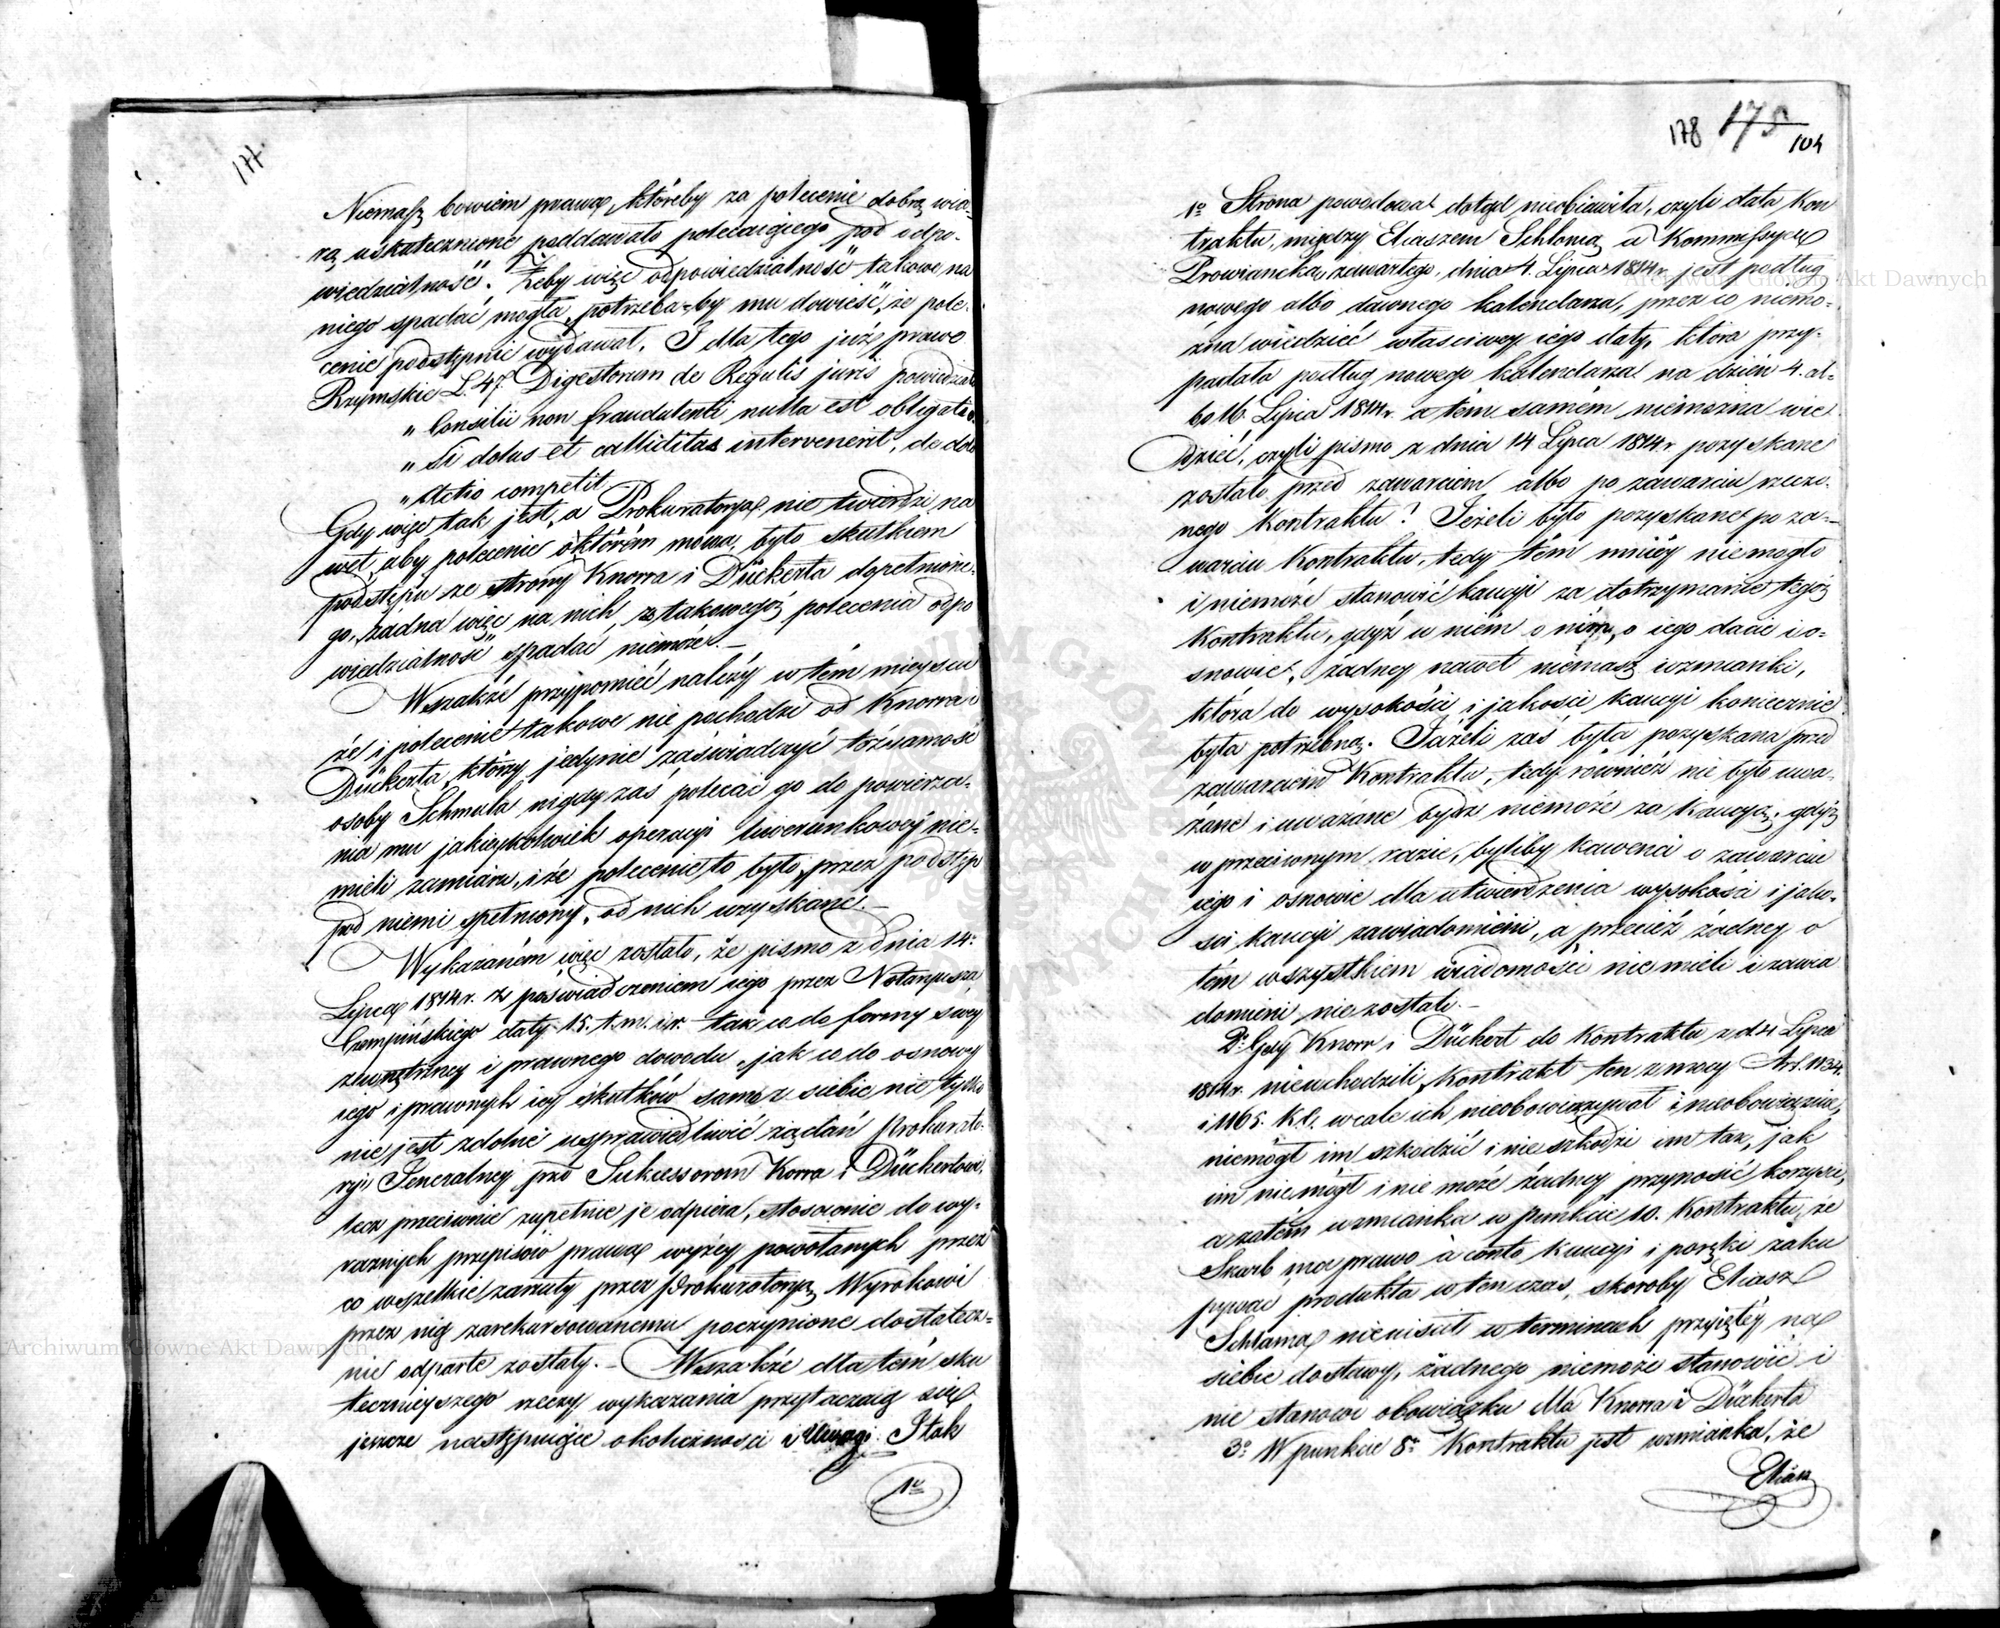 177.
Niemasz bowiem prawa, któreby za polecenie dobrą wia-
rą uskutecznione poddawało polecaiącego pod odpo-
wiedzialność. Żeby więc odpowiedzialność takowa na
niego spadać mogła, potrzeba-by mu dowieść, że pole-
cenie podstępnie wydawał. I dla tego już prawo
Rzymskie L. 47. Digestorum de Regulis juris powiedziało
„ Consilii non fraudulenti nulla est obligatio.
„ Si dolus et calliditas intervenerit, de dolo
„ Actio competit.
Gdy więc tak jest, a Prokuratorya nie twierdzi na
wet, aby polecenie o którém mowa, było skutkiem
podstępu ze strony Knorra i Dückerta dopełnione-
go, żadna więc na nich z takowegoż polecenia odpo
wiedzialność spadać niemoże. —
Wszakże przypomnieć należy w tém mieyscu
że i polecenie takowe nie pochodzi od Knorra i
Dückerta, którzy jedynie zaświadczyć tożsamość
osoby Schmula nigdy zaś polecać go do powierza-
nia mu jakieykolwiek operacyi liwerunkowéy nie-
mieli zamiaru, i że polecenie to było, przez podstęp
pod niemi spełniony, od nich uzyskane. —
Wykazaném więc zostało, że pismo z dnia 14.
Lipca 1814r. z poświadczeniem iego przez Notaryusza
Czempińskiego daty 15. t.m. i r. tak co do formy swey
zewnętrzney i prawnego dowodu, jak co do osnowy
iego i prawnych iey skutków samo z siebie nie tylko
nie jest zdolné usprawiedliwić żądań Prokurato-
ryi Jeneralney prze Sukcessorom Korra i Dückertowi,
lecz przeciwnie zupełnie je odpiera, stosownie do wy-
raznych przepisów prawa wyżey powołanych przez
co wszelkie zarzuty przez Prokuratoryą Wyrokowi
przez nią zarekursowanemu poczynione dostatecz-
nie odparte zostały. — Wszakże dla tém sku
tecznieyszego rzeczy wykazania przytaczaią się
jeszcze następuiące okoliczności i Uwagi. I tak
1o
178 175 104
1o Strona powodowa dotąd nieobiawiła, czyli data Kon
traktu, między Eliaszem Schlomą a Kommissyą
Prowiancką zawartego, dnia 4. Lipca 1814r. jest podług
nowego albo dawnego kalendarza, przez co niemo-
żna wiedzieć właściwey iego daty, która przy-
padała podług nowego kalendarza na dzień 4. al-
bo 16. Lipca 1814r. a tém samém niemożna wie
dzieć, czyli pismo z dnia 14 Lipca 1814r. pozyskane
zostało przed zawarciem albo po zawarciu rzeczo-
nego Kontraktu? Jeżeli było pozyskane po za-
warciu Kontraktu, tedy tém mniéy niemogło
i niemoże stanowić kaucyi za dotrzymanie tegoż
Kontraktu, gdyż w niém o nim, o iego dacie i o-
snowie, żadney nawet niemasz wzmianki,
która do wysokości i jakości kaucyi koniecznie
była potrzebną. Jeżeli zaś była pozyskana przed
zawarciem Kontraktu, tedy również nie było uwa-
żane i uważane bydź niemoże za Kaucyą; gdyż
w przeciwnym razie, byliby kawenci o zawarciu
iego i osnowie dla utwierdzenia wysokości i jako-
ści, kaucyi zawiadomieni, a przecież żadney o
tém wszystkiem wiadomości nie mieli i zawia
domieni nie zostali. —
2o Gdy Knorr i Dückert do Kontraktu z d. 4 Lipca
1814r. niewchodzili, Kontrakt ten z mocy Art. 1134.
i 1165. K.C. wcale ich nieobowiązywał i nieobowiązuie,
niemógł im szkodzić i nie szkodzi im tak, jak
im niemógł i nie może żadney przynosić korzyści,
a zatém wzmianka w punkcie 10. Kontraktu, że
Skarb ma prawo à conto kaucyi i poręki zaku
pywać produkta w ten czas, skoroby Eliasz
Schloma nieuiścił w terminach przyiętéy na
siebie dostawy, żadnego niemoże stanowić i
nie stanowi obowiązku dla Knorra i Dückerta
3o W punkcie 8o Kontraktu jest wzmianka, że
Eliasz